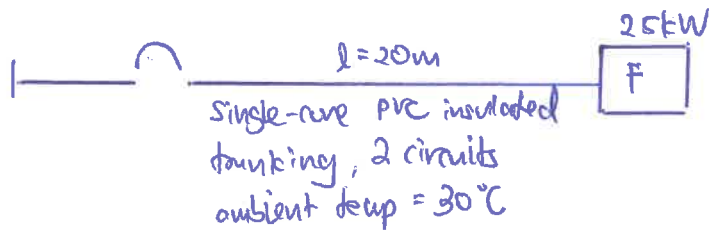 25kW
l=20m
F
single-core PVC insulated
trunking, 2 circuits
ambient temp = 30°C